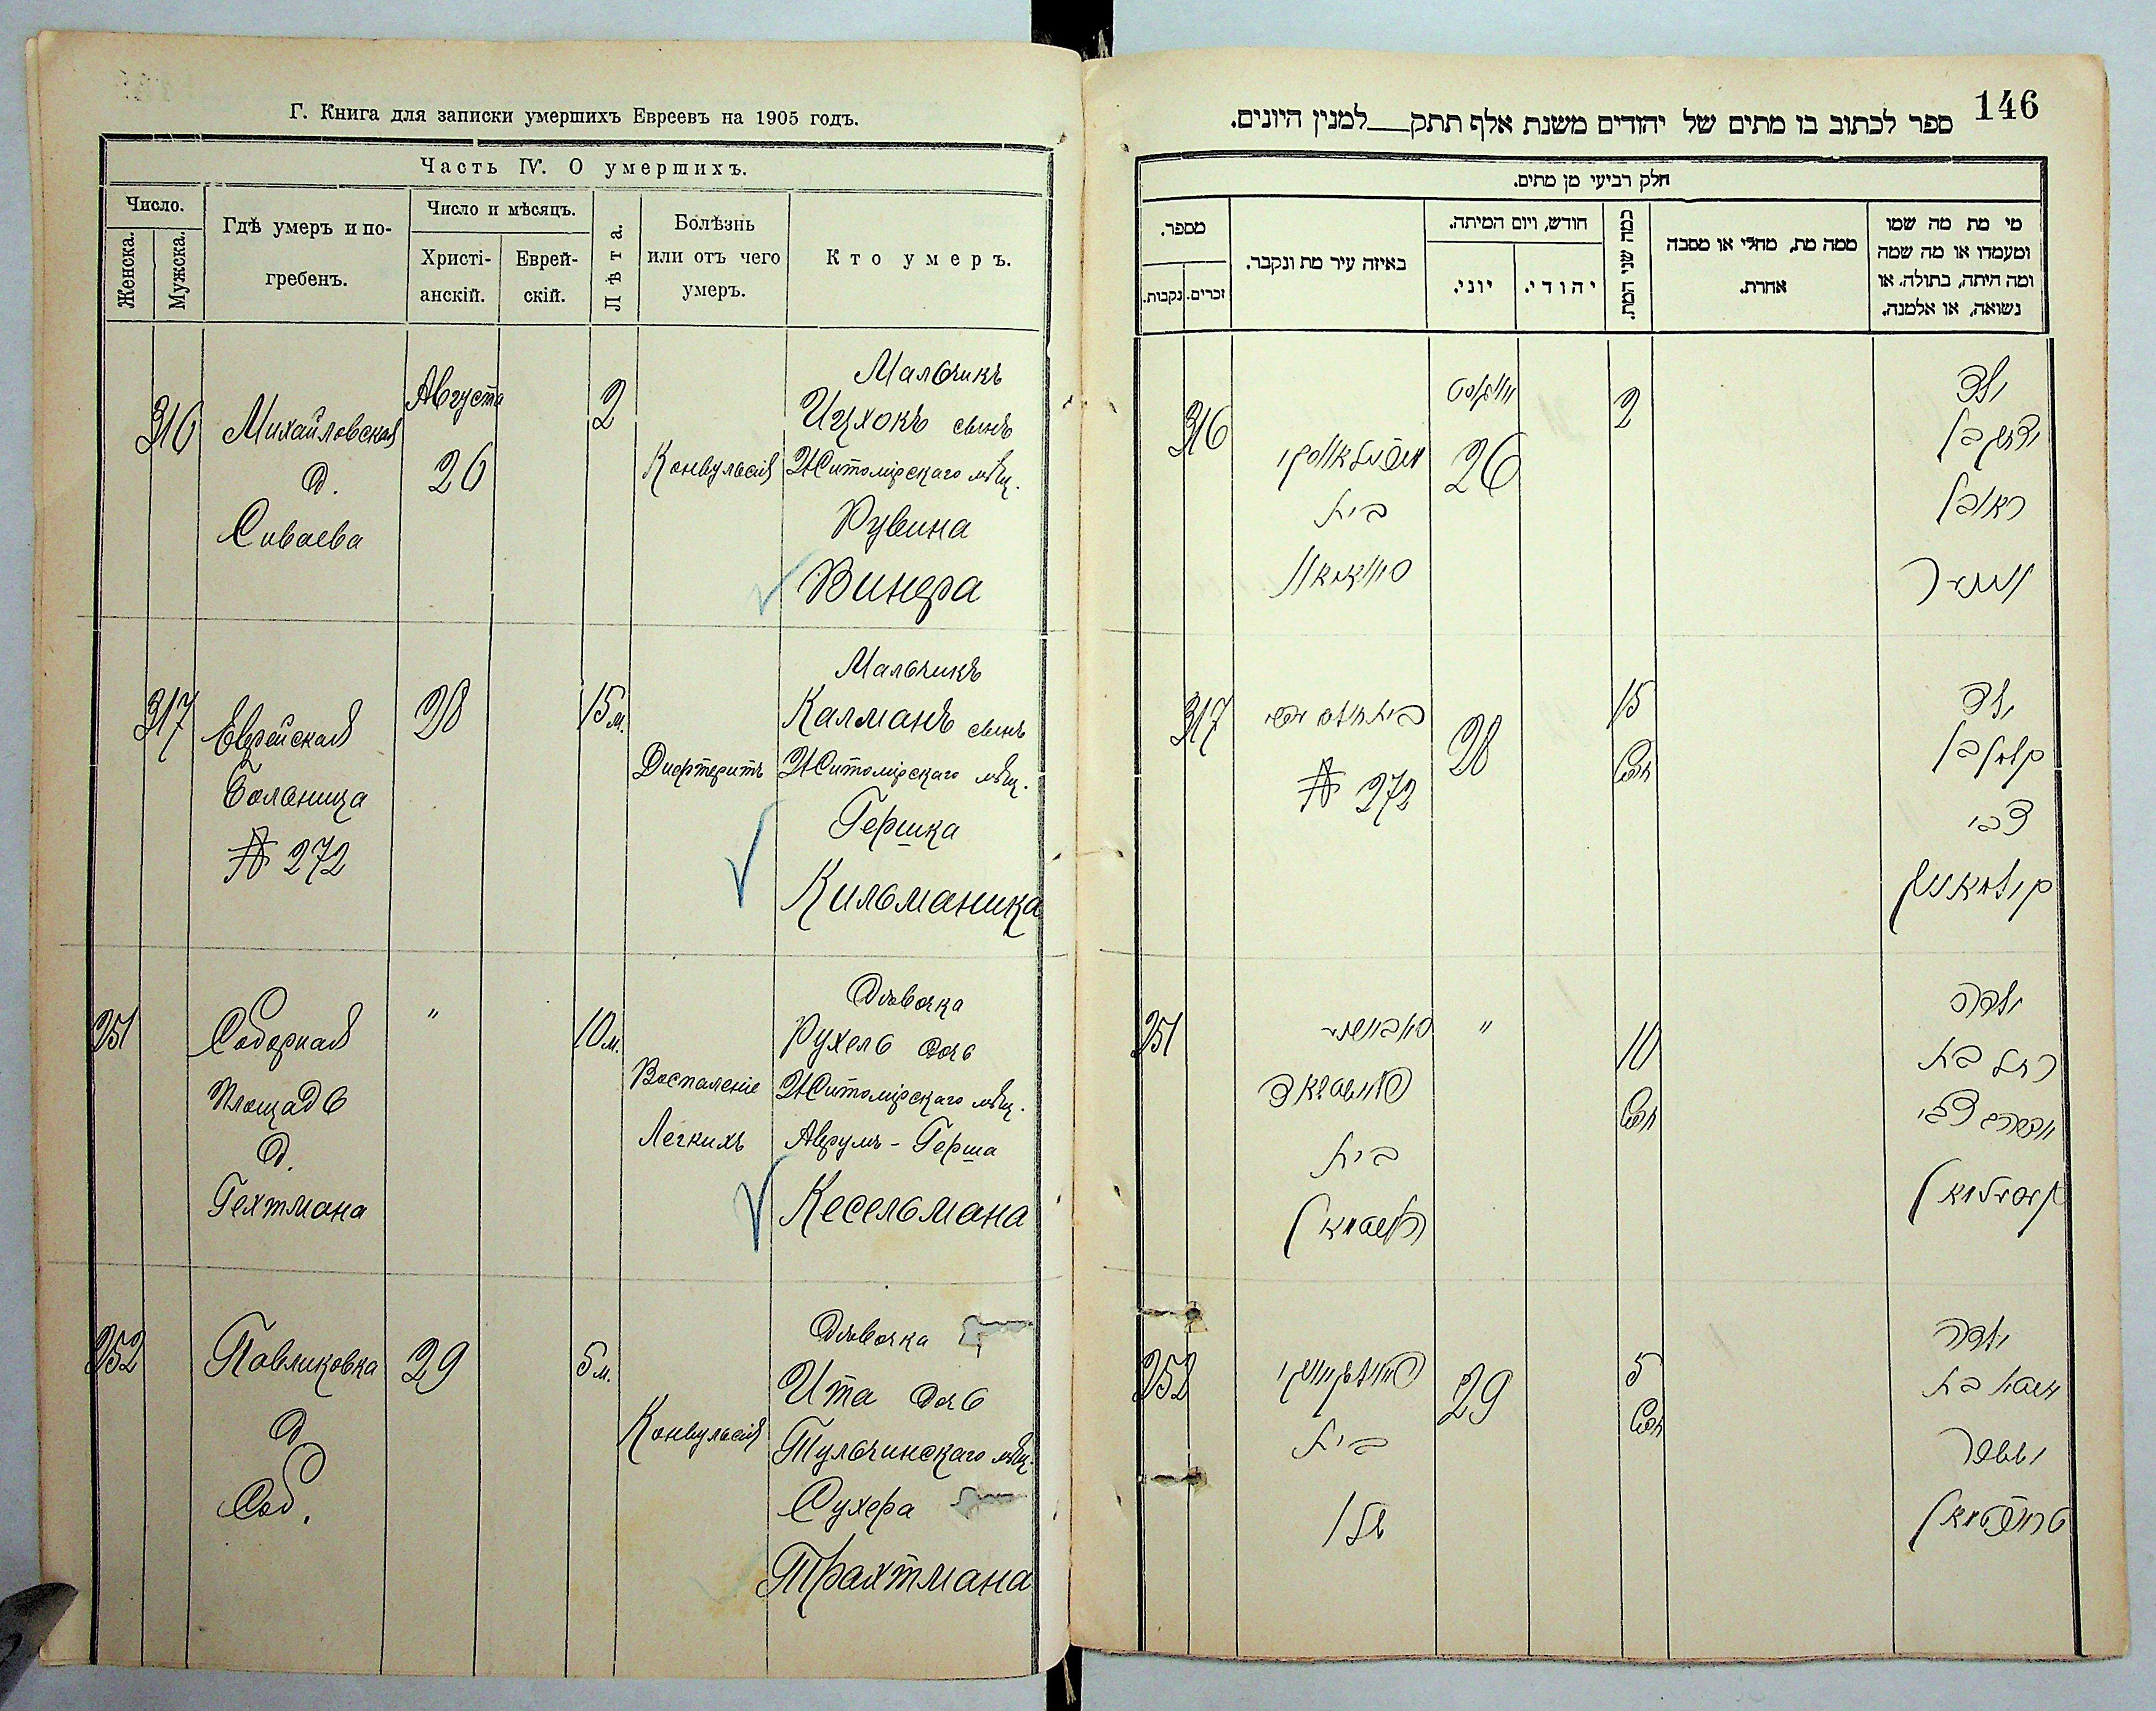 Г. Книга для записки умершихъ Евреевъ на 1905 годъ.
Часть IV. О умершихъ.
Число.
Женска.
Мужска.
Гдѣ умеръ и по-
гребенъ.
Число и мѣсяцъ.
Христі-
анскій.
Еврей-
скій.
Лѣта.
Болѣзнь
или отъ чего
умеръ.
Кто умеръ.
316
Михайловская
д.
Сиваева
Августа
26
2
Конвульсія
Мальчикъ
Ицхокъ сынъ
Житомірскаго мѣщ.
Рувина
Винера
317
Еврейская
Больница
№ 272
28
15 м.
Дифтеритъ
Мальчикъ
Калманъ сынъ
Житомірскаго мѣщ.
Гершка
Кильманика
251
Соборная
Площадь
д.
Гехтмана
"
10 м.
Воспаленіе
Легкихъ
Дѣвочка
Рухель дочь
Житомірскаго мѣщ.
Аврумъ-Герша
Кесельмана
252
Павликовка
д.
Соб.
29
5 м.
Конвульсія
Дѣвочка
Ита дочь
Тульчинскаго мѣщ.
Сухера
Трахтмана
146
ספר לכתוב בו מתים של יהודים משנת אלף תתק__למנין היונים.
חלק רביעי מן מתים.
מספר.
נקבות.
זכרים.
באיזה עיר מת ונקבר.
חודש, ויום המיתה.
יוני.
יהודי.
כמה שני המת.
ממה מת, מחלי או מסבה
אחרת.
מי מת מה שמו
ומעמדו או מה שמה
ומה היתה, בתולה, או
נשואה, או אלמנה.
316
בית
26
2
ילד
יצחק בן
ראובן
ווינער
317
№ 272
28
15
חדש
ילד
קלמן בן
צבי
251
בית
העכטמאן
"
10
חדש
ילדה
רחל בת
אברהם צבי
קעסעלמאן
252
בית
שלו
29
5
חדש
ילדה
איטא בת
יששכר
טראכטמאן